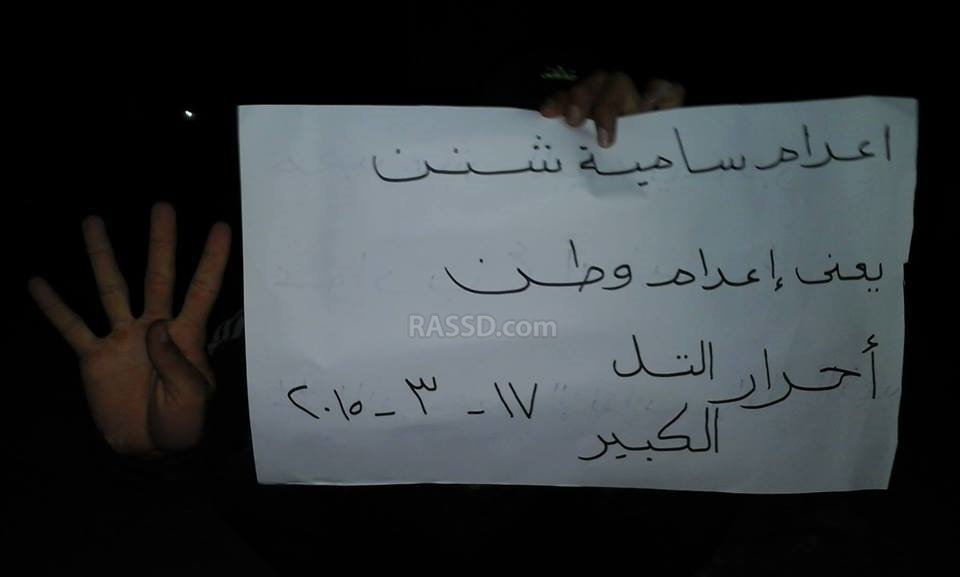 اعدام سامية شنن
يعنى إعدام وطن
RASSD.com
أحرار التل
الكبير
١٧ - ٣ - ٢٠١٥